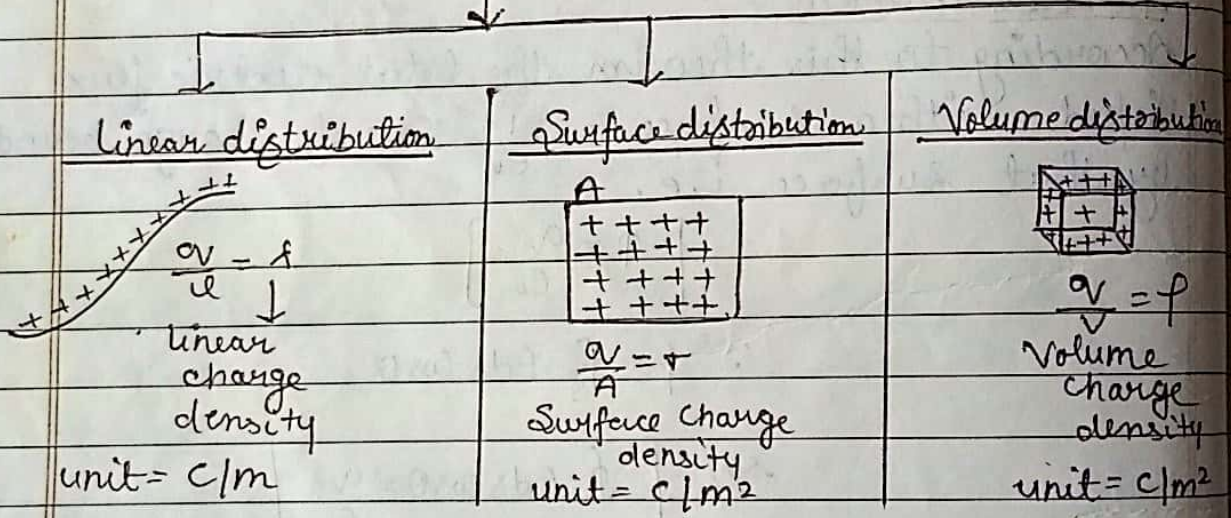 Linear distribution
q/l = λ
linear
charge
density
unit = C/m
Surface distribution
A
q/A = σ
Surface Charge
density
unit = C/m²
Volume distribution
q/V = ρ
Volume
Charge
density
unit = C/m²